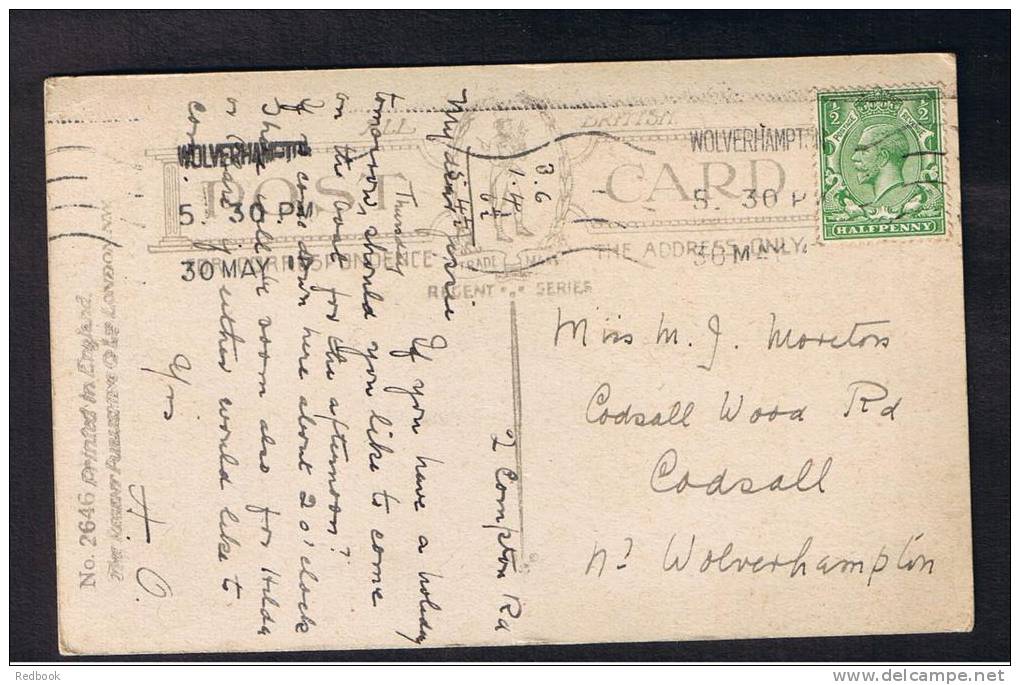 ALL BRITISH
POST CARD
FOR CORRESPONDENCE
THE ADDRESS ONLY.
TRADE MARK
REGENT SERIES
WOLVERHAMPTON
5. 30 PM
30 MAY
WOLVERHAMPTON
5. 30 P
30 MAY
1/2 1/2
POSTAGE REVENUE
HALFPENNY
Miss M. J. Moreton
Codsall Wood Rd
Codsall
Nr Wolverhampton
2 Compton Rd
3.6
1.4
Thursday
My dear
If you have a holiday
tomorrow, should you like to come
on the boat for the afternoon?
If so come down here about 2 o'clock
I shall have room also for Hilda
or Clare if either would like to
come.
Yrs
H. O.
No. 2646 Printed in England.
THE REGENT PUBLISHING CO LTD LONDON NW
Redbook
delcampe.net